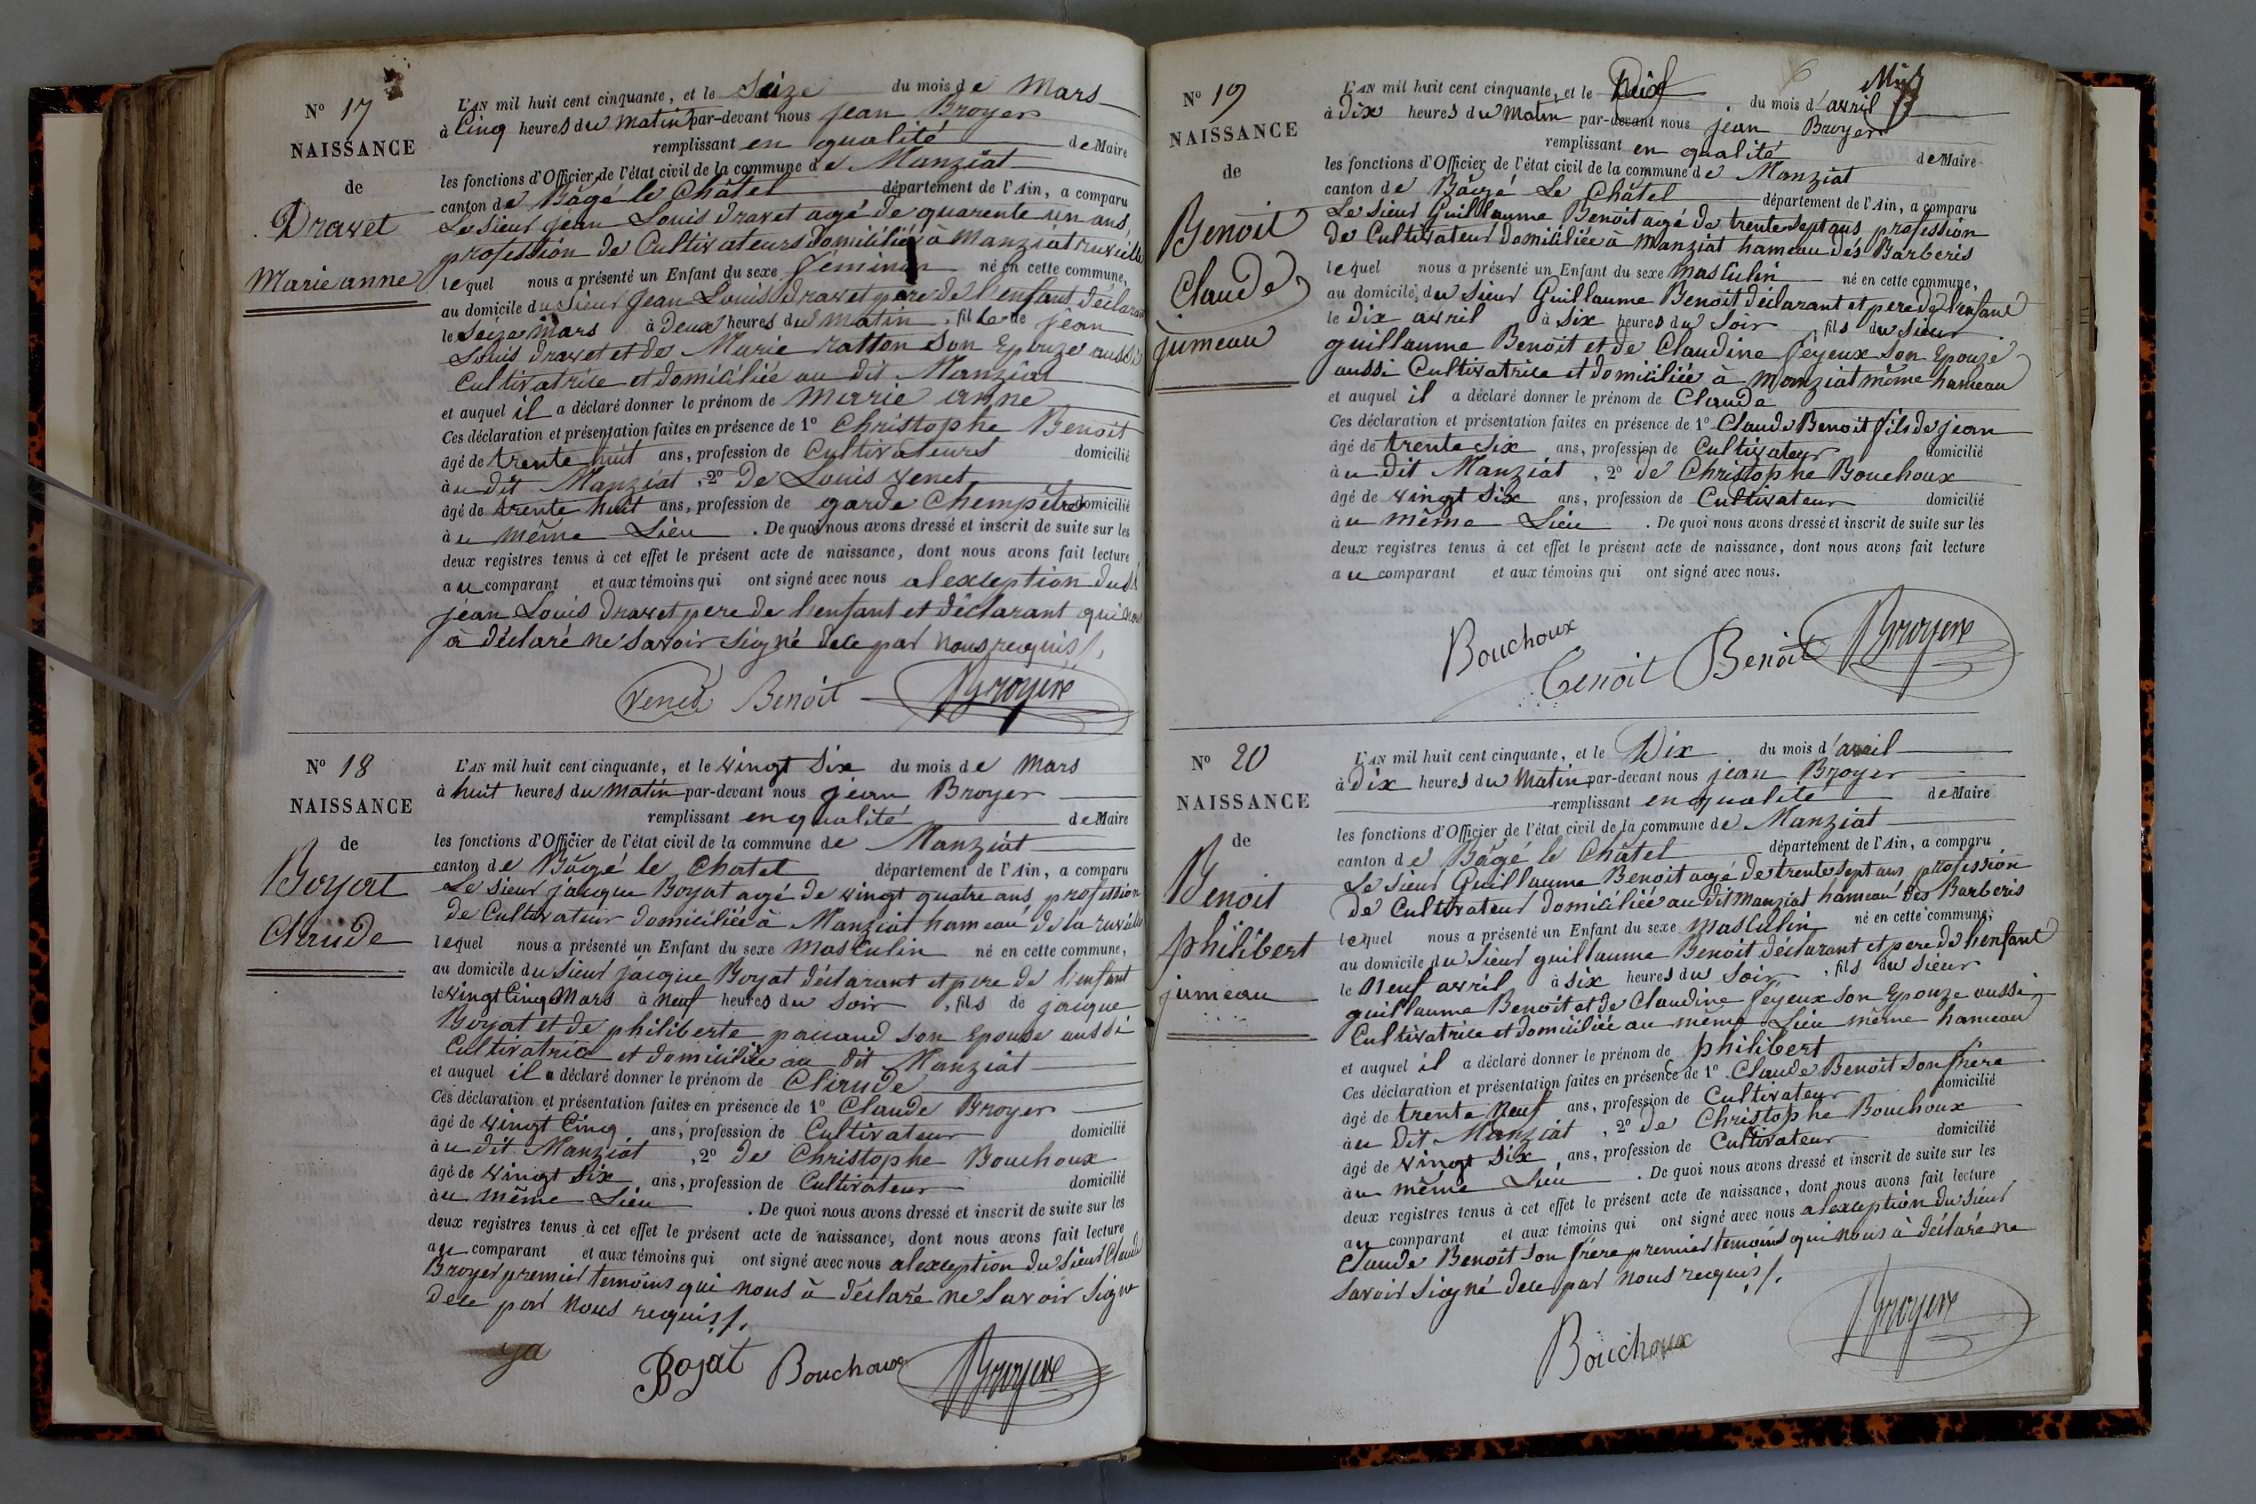 N° 17
NAISSANCE
de
Dravet
Marie anne
L'AN mil huit cent cinquante, et le Seize du mois de Mars
à Cinq heures du matin par-devant nous jean Broyer
remplissant en qualité de Maire
les fonctions d'Officier de l'état civil de la commune de Manziat
canton de Bâgé le Châtel département de l'Ain, a comparu
Le Sieur jean Louis dravet agé de quarente un ans,
profession de Cultivateurs domicilié à Manziat
lequel nous a présenté un Enfant du sexe féminin né en cette commune,
au domicile du Sieur Jean Louis dravet père de l'enfant déclarant
le Seize Mars à Deux heures du Matin, fille de jean
Louis dravet et de Marie ratton Son Epouze aussi
Cultivatrice et domiciliée au dit Manziat
et auquel il a déclaré donner le prénom de Marie anne
Ces déclaration et présentation faites en présence de 1° Christophe Benoit
âgé de trente huit ans, profession de Cultivateurs domicilié
àu dit Manziat, 2° De Louis Venet
âgé de trente huit ans, profession de garde Champêtre domicilié
àu même Lieu. De quoi nous avons dressé et inscrit de suite sur les
deux registres tenus à cet effet le présent acte de naissance, dont nous avons fait lecture
au comparant et aux témoins qui ont signé avec nous alexception du
jean Louis dravet pere de lenfant et déclarant qui
à déclaré ne Savoir Signé dece par nous requis/.
Venet Benoit Broyer
N° 18
NAISSANCE
de
Boyat
Claude
L'AN mil huit cent cinquante, et le vingt Six du mois de Mars
à huit heures du Matin par-devant nous jean Broyer
remplissant en qualité de Maire
les fonctions d'Officier de l'état civil de la commune de Manziat
canton de Bâgé le Chatel département de l'Ain, a comparu
Le Sieur jacque Boyat agé de vingt quatre ans profession
de Cultivateur domiciliée à Manziat hameau de la
lequel nous a présenté un Enfant du sexe Masculin né en cette commune,
au domicile du Sieur jacque Boyat déclarant et pere de l'enfant
le vingt Cinq Mars à Neuf heures du Soir, fils de jacque
Boyat et de philiberte pauand son Epouse aussi
Cultivatrice et domiciliée au dit Manziat
et auquel il a déclaré donner le prénom de Claude
Ces déclaration et présentation faites en présence de 1° Claude Broyer
âgé de vingt Cinq ans, profession de Cultivateur domicilié
àu dit Manziat, 2° de Christophe Bouchoux
âgé de vingt Six ans, profession de Cultivateur domicilié
àu même Lieu. De quoi nous avons dressé et inscrit de suite sur les
deux registres tenus à cet effet le présent acte de naissance, dont nous avons fait lecture
au comparant et aux témoins qui ont signé avec nous alexception du Sieur Claude
Broyer premier temoins qui nous à déclaré ne Savoir Signe
dece par nous requis/.
Boyat Bouchoux Broyer
N° 19
NAISSANCE
de
Benoit
Claude
jumeau
L'AN mil huit cent cinquante, et le Dix du mois d'avril
à Dix heures du Matin par-devant nous jean Broyer
remplissant en qualité de Maire
les fonctions d'Officier de l'état civil de la commune de Manziat
canton de Bâgé Le Châtel département de l'Ain, a comparu
Le Sieur Guillaume Benoit agé de trente sept ans profession
de Cultivateur domiciliée à Manziat hameau des Barberis
lequel nous a présenté un Enfant du sexe Masculin né en cette commune,
au domicile du Sieur Guillaume Benoit déclarant et pere de l'enfant
le dix avril à Six heures du Soir, fils du Sieur
guillaume Benoit et de Claudine feyeux Son Epouze
aussi Cultivatrice et domiciliée à Manziat même hameau
et auquel il a déclaré donner le prénom de Claude
Ces déclaration et présentation faites en présence de 1° Claude Benoit fils de jean
âgé de trente Six ans, profession de Cultivateur domicilié
àu dit Manziat, 2° de Christophe Bouchoux
âgé de vingt Six ans, profession de Cultivateur domicilié
àu même Lieu. De quoi nous avons dressé et inscrit de suite sur les
deux registres tenus à cet effet le présent acte de naissance, dont nous avons fait lecture
au comparant et aux témoins qui ont signé avec nous.
Bouchoux Benoit Benoit Broyer
N° 20
NAISSANCE
de
Benoit
philibert
jumeau
L'AN mil huit cent cinquante, et le Dix du mois d'avril
à Dix heures du Matin par-devant nous jean Broyer
remplissant en qualité de Maire
les fonctions d'Officier de l'état civil de la commune de Manziat
canton de Bâgé le Châtel département de l'Ain, a comparu
Le Sieur Guillaume Benoit agé de trente sept ans profession
de Cultivateur domiciliée au dit Manziat hameau des Barberis
lequel nous a présenté un Enfant du sexe Masculin né en cette commune,
au domicile du Sieur guillaume Benoit déclarant et pere de lenfant
le Neuf avril à Six heures du Soir, fils du Sieur
guillaume Benoit et de Claudine feyeux Son Epouze aussi
Cultivatrice et domiciliée au même Lieu même hameau
et auquel il a déclaré donner le prénom de philibert
Ces déclaration et présentation faites en présence de 1° Claude Benoit Son frere
âgé de trente Neuf ans, profession de Cultivateur domicilié
àu dit Manziat, 2° de Christophe Bouchoux
âgé de vingt Six ans, profession de Cultivateur domicilié
àu même Lieu. De quoi nous avons dressé et inscrit de suite sur les
deux registres tenus à cet effet le présent acte de naissance, dont nous avons fait lecture
au comparant et aux témoins qui ont signé avec nous alexception du Sieur
Claude Benoit Son frere premier temoins qui nous à déclaré ne
Savoir Signé dece par nous requis/.
Bouchoux Broyer